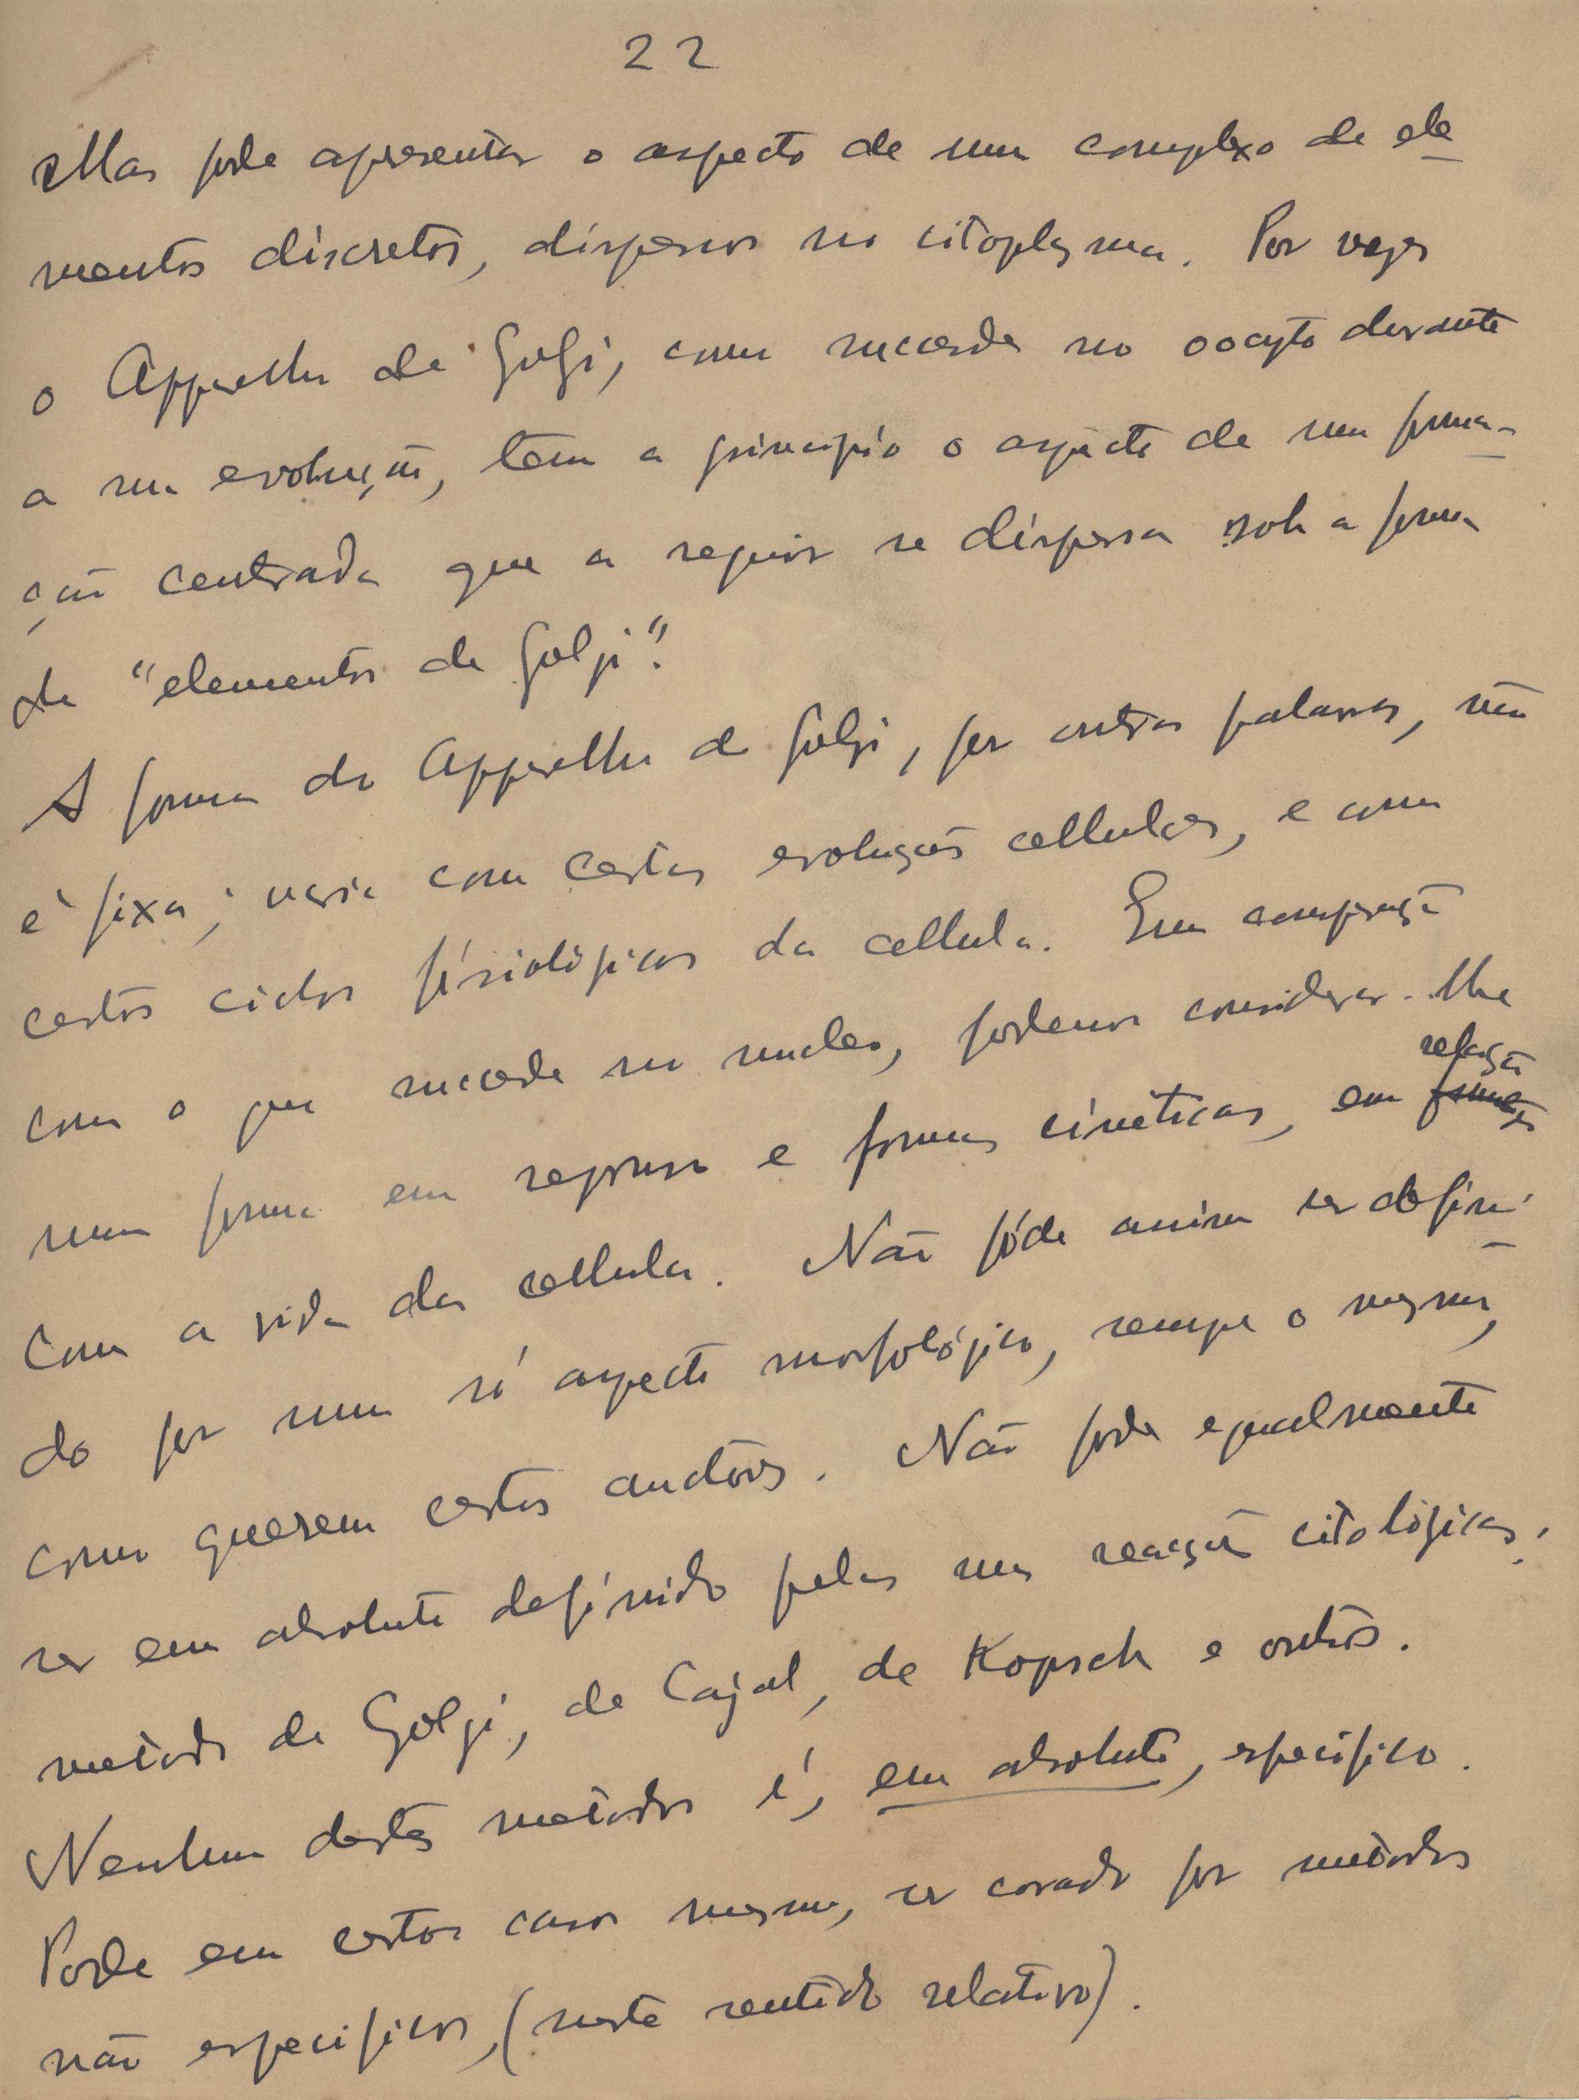 22
Mas pode apresentar o aspecto de um complexo de ele
mentos discretos, dispersos no citoplasma. Por vezes
o Apparelho de Golgi, como succede no oocyto durante
a sua evolução, tem a principio o aspecto de uma forma-
ção centrada que a seguir se dispersa sob a forma
de "elementos de Golgi".
A forma do Apparelho de Golgi, por outras palavras, não
é fixa; varia com certas evoluções cellulares, e com
certos ciclos fisiológicos da cellula. Em comparação
com o que succede no nucleo, podemos considerar-lhe
uma forma em repouso e formas cinéticas, em relação
com a vida da cellula. Não póde assim ser defini-
do por um só aspecto morfológico, sempre o mesmo,
como querem certos auctores. Não pode egualmente
ser em absoluto definido pelas suas reacções citológicas:
método de Golgi, de Cajal, de Kopsch e outros.
Nenhum destes métodos é, em absoluto, especifico.
Pode em certos casos mesmo, ser corado por métodos
não especificos, (neste sentido relativo).